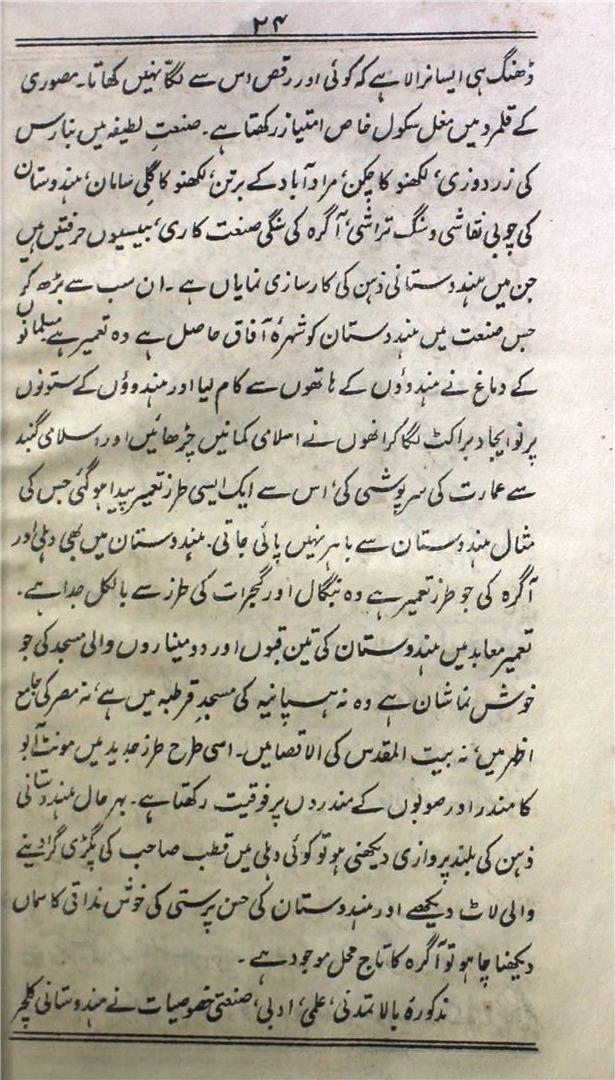 ۲۴
ڈھنگ ہی ایسا نرالا ہے کہ کوئی اور رقص اس سے لگا نہیں کھاتا۔ مصوری
کے قلمرو میں مغل سکول خاص امتیاز رکھتا ہے۔ صنعتِ لطیفہ میں بنارس
کی زردوزی، لکھنو کا چکن، مرادآباد کے برتن، لکھنو کا گلی سامان، ہندوستان
کی چوبی نقاشی و سنگ تراشی، آگرہ کی سنگی صنعت کاری، بیسیوں حرفتیں ہیں
جن میں ہندوستانی ذہن کی کارسازی نمایاں ہے۔ ان سب سے بڑھ کر
جس صنعت میں ہندوستان کو شہرۂ آفاق حاصل ہے وہ تعمیر ہے مسلمانوں
کے دماغ نے ہندوؤں کے ہاتھوں سے کام لیا اور ہندوؤں کے ستونوں
پر نوایجاد براکٹ لگا کر انھوں نے اسلامی کمانیں چڑھائیں اور اسلامی گنبد
سے عمارت کی سرپوشی کی، اس سے ایک ایسی طرز تعمیر پیدا ہوگئی جس کی
مثال ہندوستان سے باہر نہیں پائی جاتی۔ ہندوستان میں بھی دہلی اور
آگرہ کی جو طرز تعمیر ہے وہ بنگال اور گجرات کی طرز سے بالکل جدا ہے۔
تعمیر معابد میں ہندوستان کی تین قبوں اور دو میناروں والی مسجد کی جو
خوش نما شان ہے وہ نہ ہسپانیہ کی مسجدِ قرطبہ میں ہے، نہ مصر کی جامع
اظہر میں، نہ بیت المقدس کی الاقصا میں۔ اسی طرح طرز جدید میں مونٹ آبو
کا مندر اور صوبوں کے مندروں پر فوقیت رکھتا ہے۔ بہرحال ہندوستانی
ذہن کی بلند پروازی دیکھنی ہو تو کوئی دہلی میں قطب صاحب کی پگڑی گرا دینے
والی لاٹ دیکھے اور ہندوستان کی حسن پرستی کی خوش مذاقی کا سماں
دیکھنا چاہو تو آگرہ کا تاج محل موجود ہے۔
مذکورۂ بالا تمدنی، علمی، ادبی، صنعتی خصوصیات نے ہندوستانی کلچر